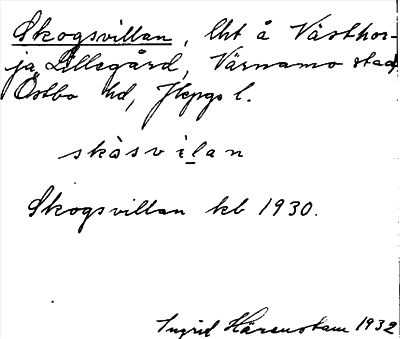 Skogsvillan, lht å Västhor-
ja Lillegård, Värnamo stad
Östbo hd, Jkpgs l.
skåsvilan
Skogsvillan kb 1930.
Ingrid Härenstam 1932